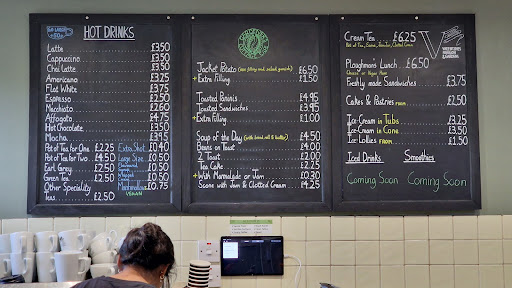 HOT DRINKS
Latte £3.50
Cappuccino £3.50
Chai Latte £3.50
Americano £3.25
Flat White £3.75
Espresso £2.50
Macchiato £2.60
Affogato £4.75
Hot Chocolate £3.50
Mocha £3.95
Pot of Tea for One £2.25
Pot of Tea for Two £4.50
Earl Grey £2.50
Green Tea £2.50
Other Speciality
Teas £2.50
Extra Shot £0.40
Large Size £0.50
£0.50
£0.50
£0.75
Marshmallow
VEGAN
Jacket Potato (one filling and salad garnish) £6.50
+ Extra Filling £1.50
Toasted Paninis £4.95
Toasted Sandwiches £3.95
+ Extra Filling £1.00
Soup of the Day (with bread roll & butter) £4.50
Beans on Toast £4.00
2 Toast £2.00
Tea Cake £2.25
+ With Marmalade or Jam £0.30
Scone with Jam & Clotted Cream £4.25
Cream Tea £6.25
Pot of Tea, Scone, Butter, Clotted Cream
Ploughman's Lunch £6.50
Cheese or Vegan Ham
Freshly made Sandwiches £3.75
Cakes & Pastries FROM £2.50
Ice-Cream in Tubs £3.25
Ice-Cream in Cone £3.50
Ice Lollies FROM £1.50
Iced Drinks Smoothies
Coming Soon Coming Soon